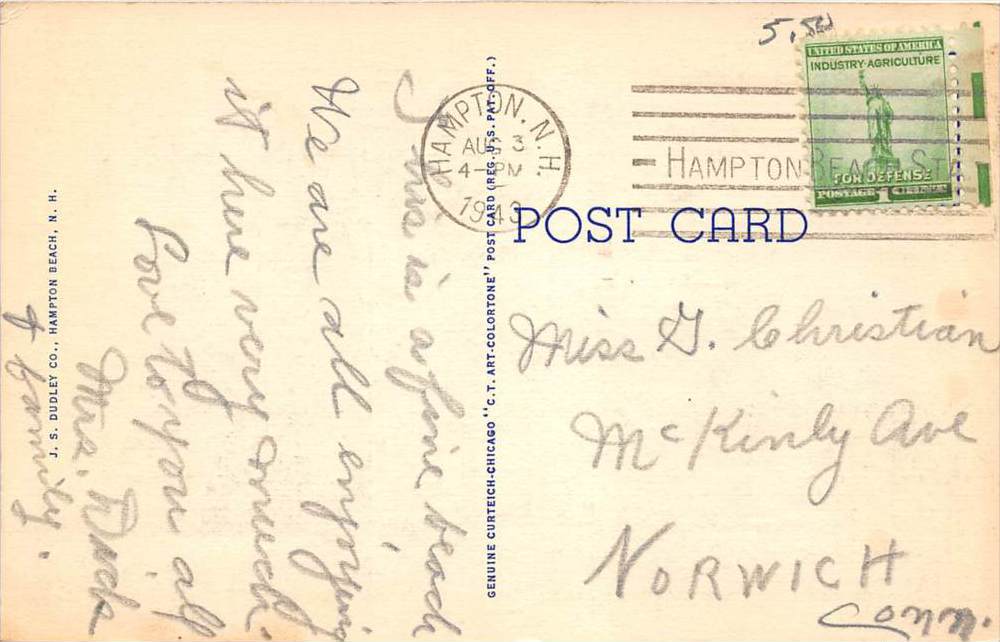 5.50
UNITED STATES OF AMERICA
INDUSTRY·AGRICULTURE
FOR DEFENSE
POSTAGE 1 CENT
HAMPTON, N.H.
AUG 3
4-PM
1943
HAMPTON BEACH ST
POST CARD
Miss G. Christian
McKinly Ave
NORWICH
Conn.
GENUINE CURTEICH-CHICAGO "C.T. ART-COLORTONE" POST CARD (REG. U.S. PAT. OFF.)
This is a fine beach
We are all enjoying
it here very much.
Love to you all
Mrs.
& family.
J. S. DUDLEY CO., HAMPTON BEACH, N. H.